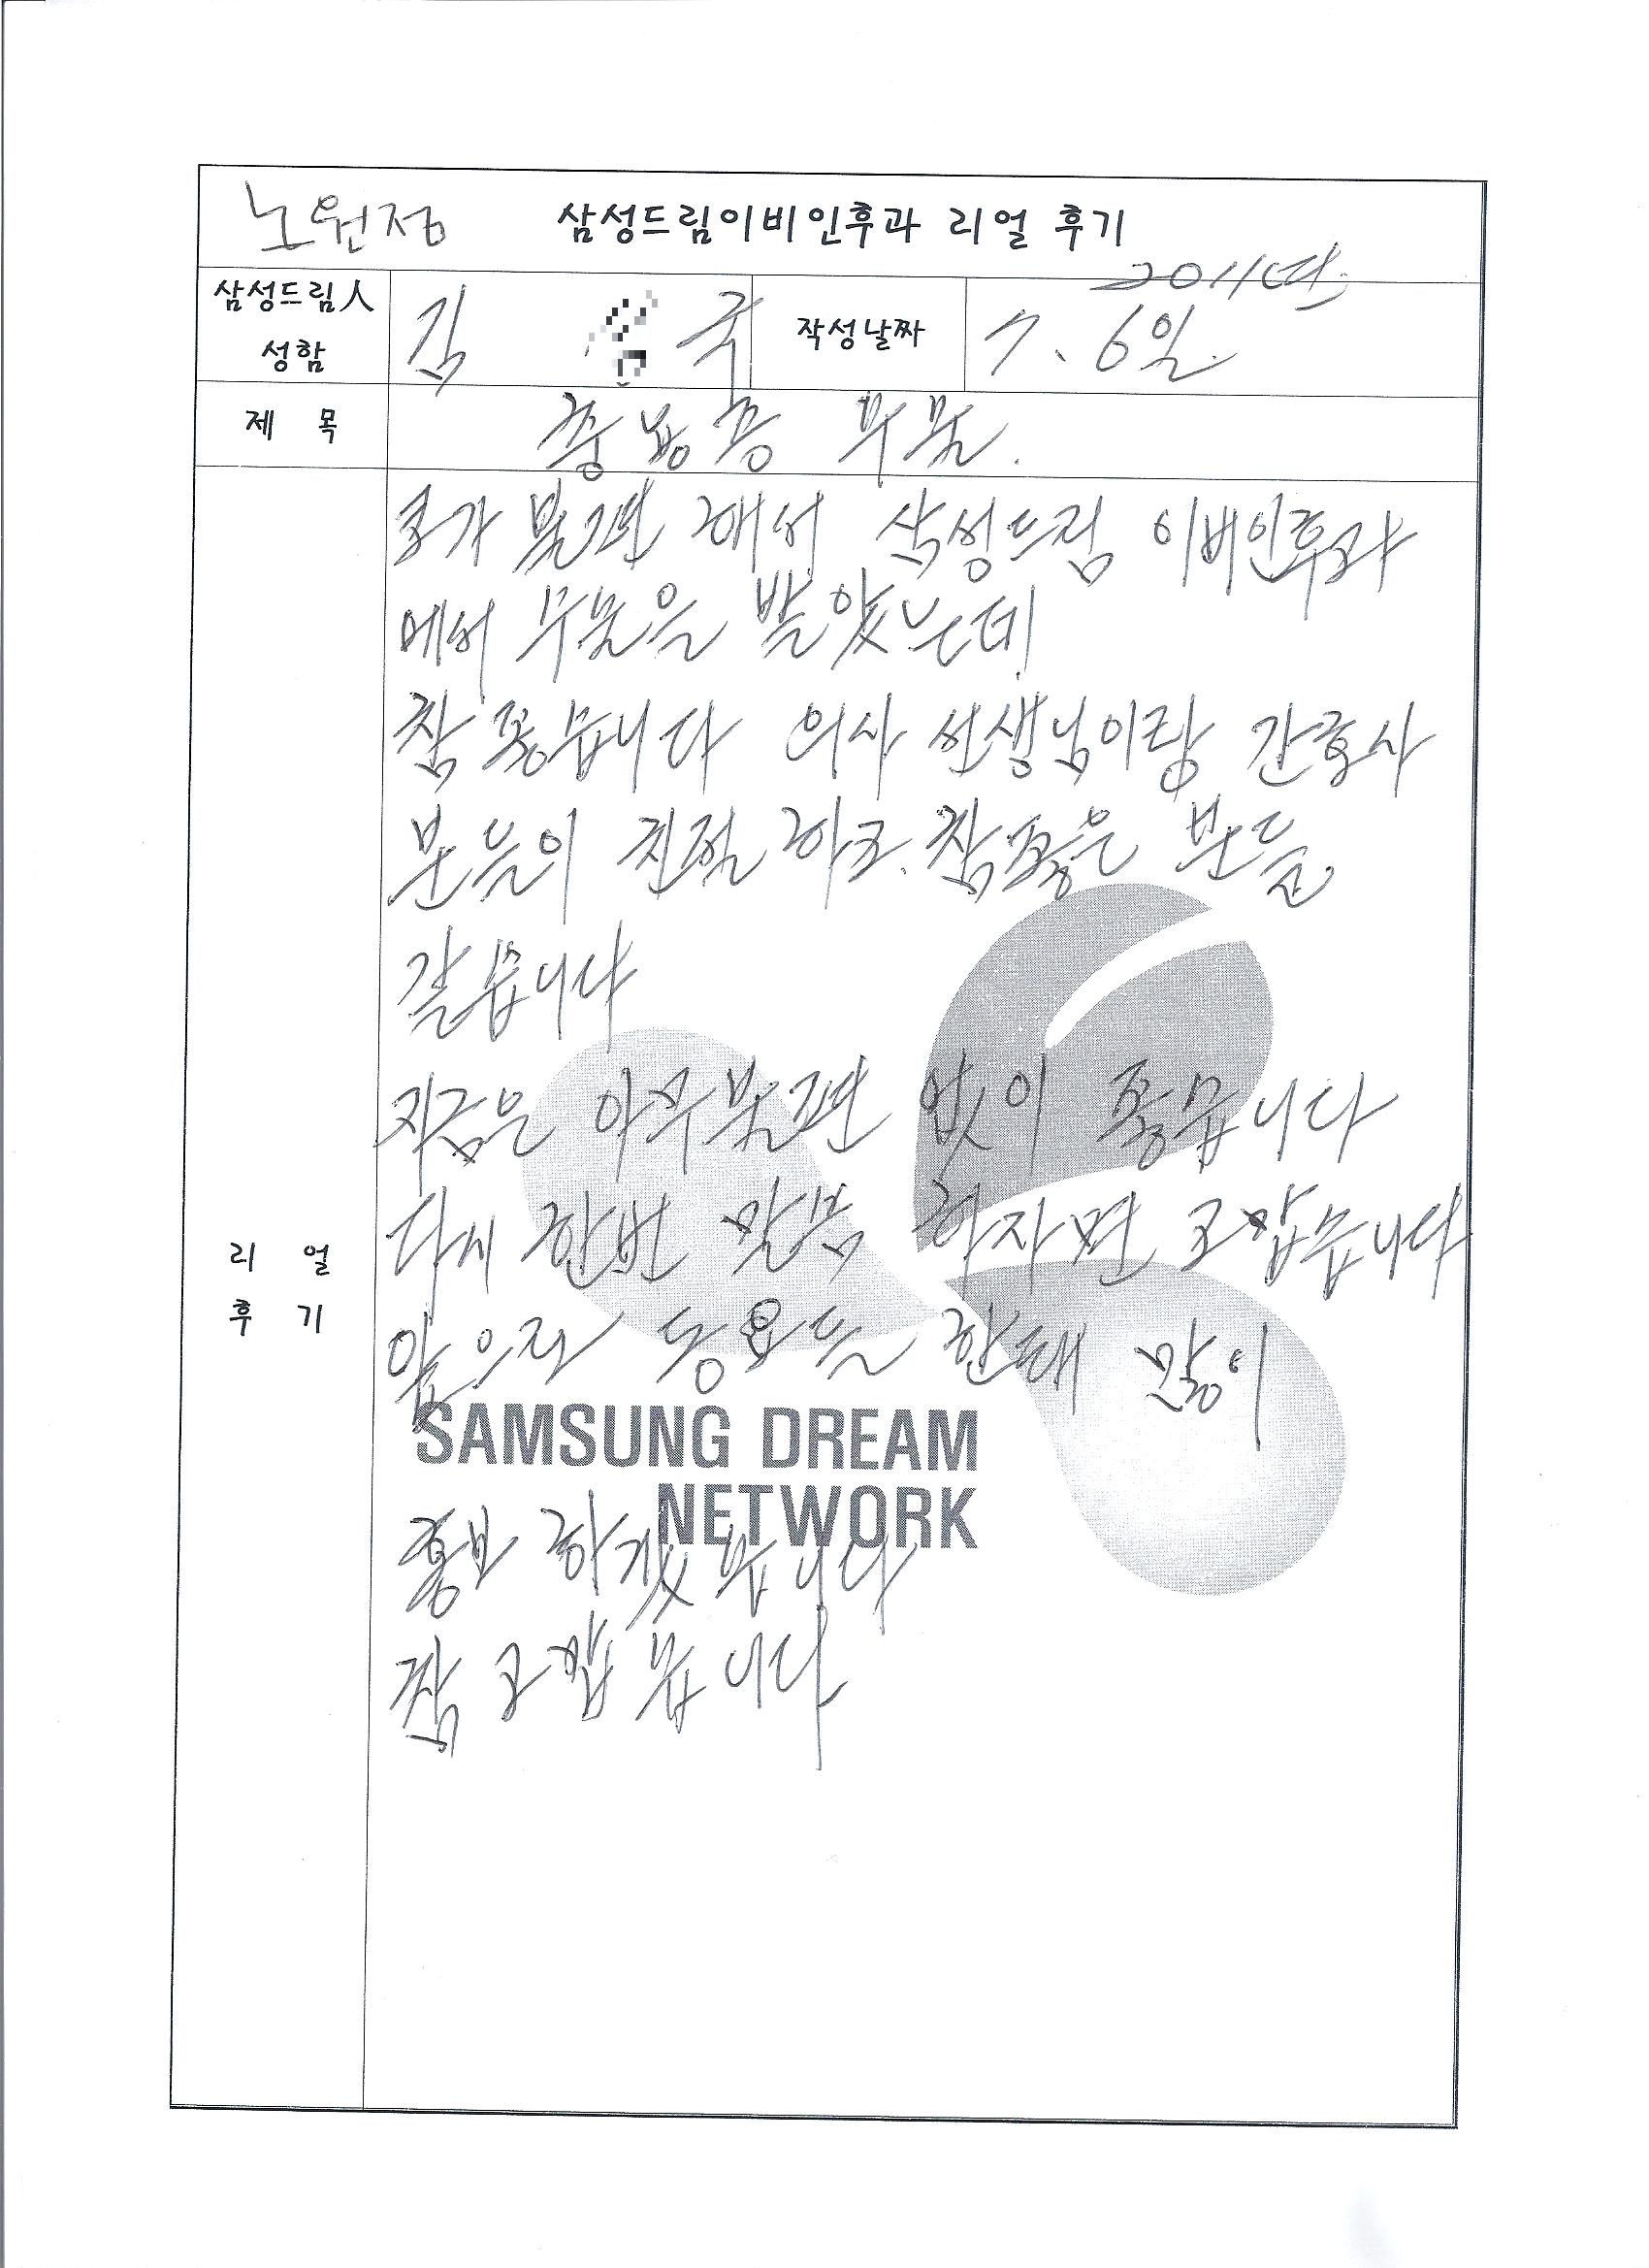 노원점 삼성드림이비인후과 리얼 후기
삼성드림人 성함 김 국 작성날짜 2011년 7. 6일
제 목 수술
코가 불편해서 삼성드림 이비인후과
에서 수술을 받았는데
참 좋습니다 의사 선생님이랑 간호사
분들이 친절하고. 참좋은 분들
같습니다
지금은 아무불편 없이 좋습니다
다시 한번 말씀 하자면 고맙습니다
앞으로 동료들 한태 많이
SAMSUNG DREAM
NETWORK
홍보 하겠습니다
참 고맙습니다
리 얼
후 기